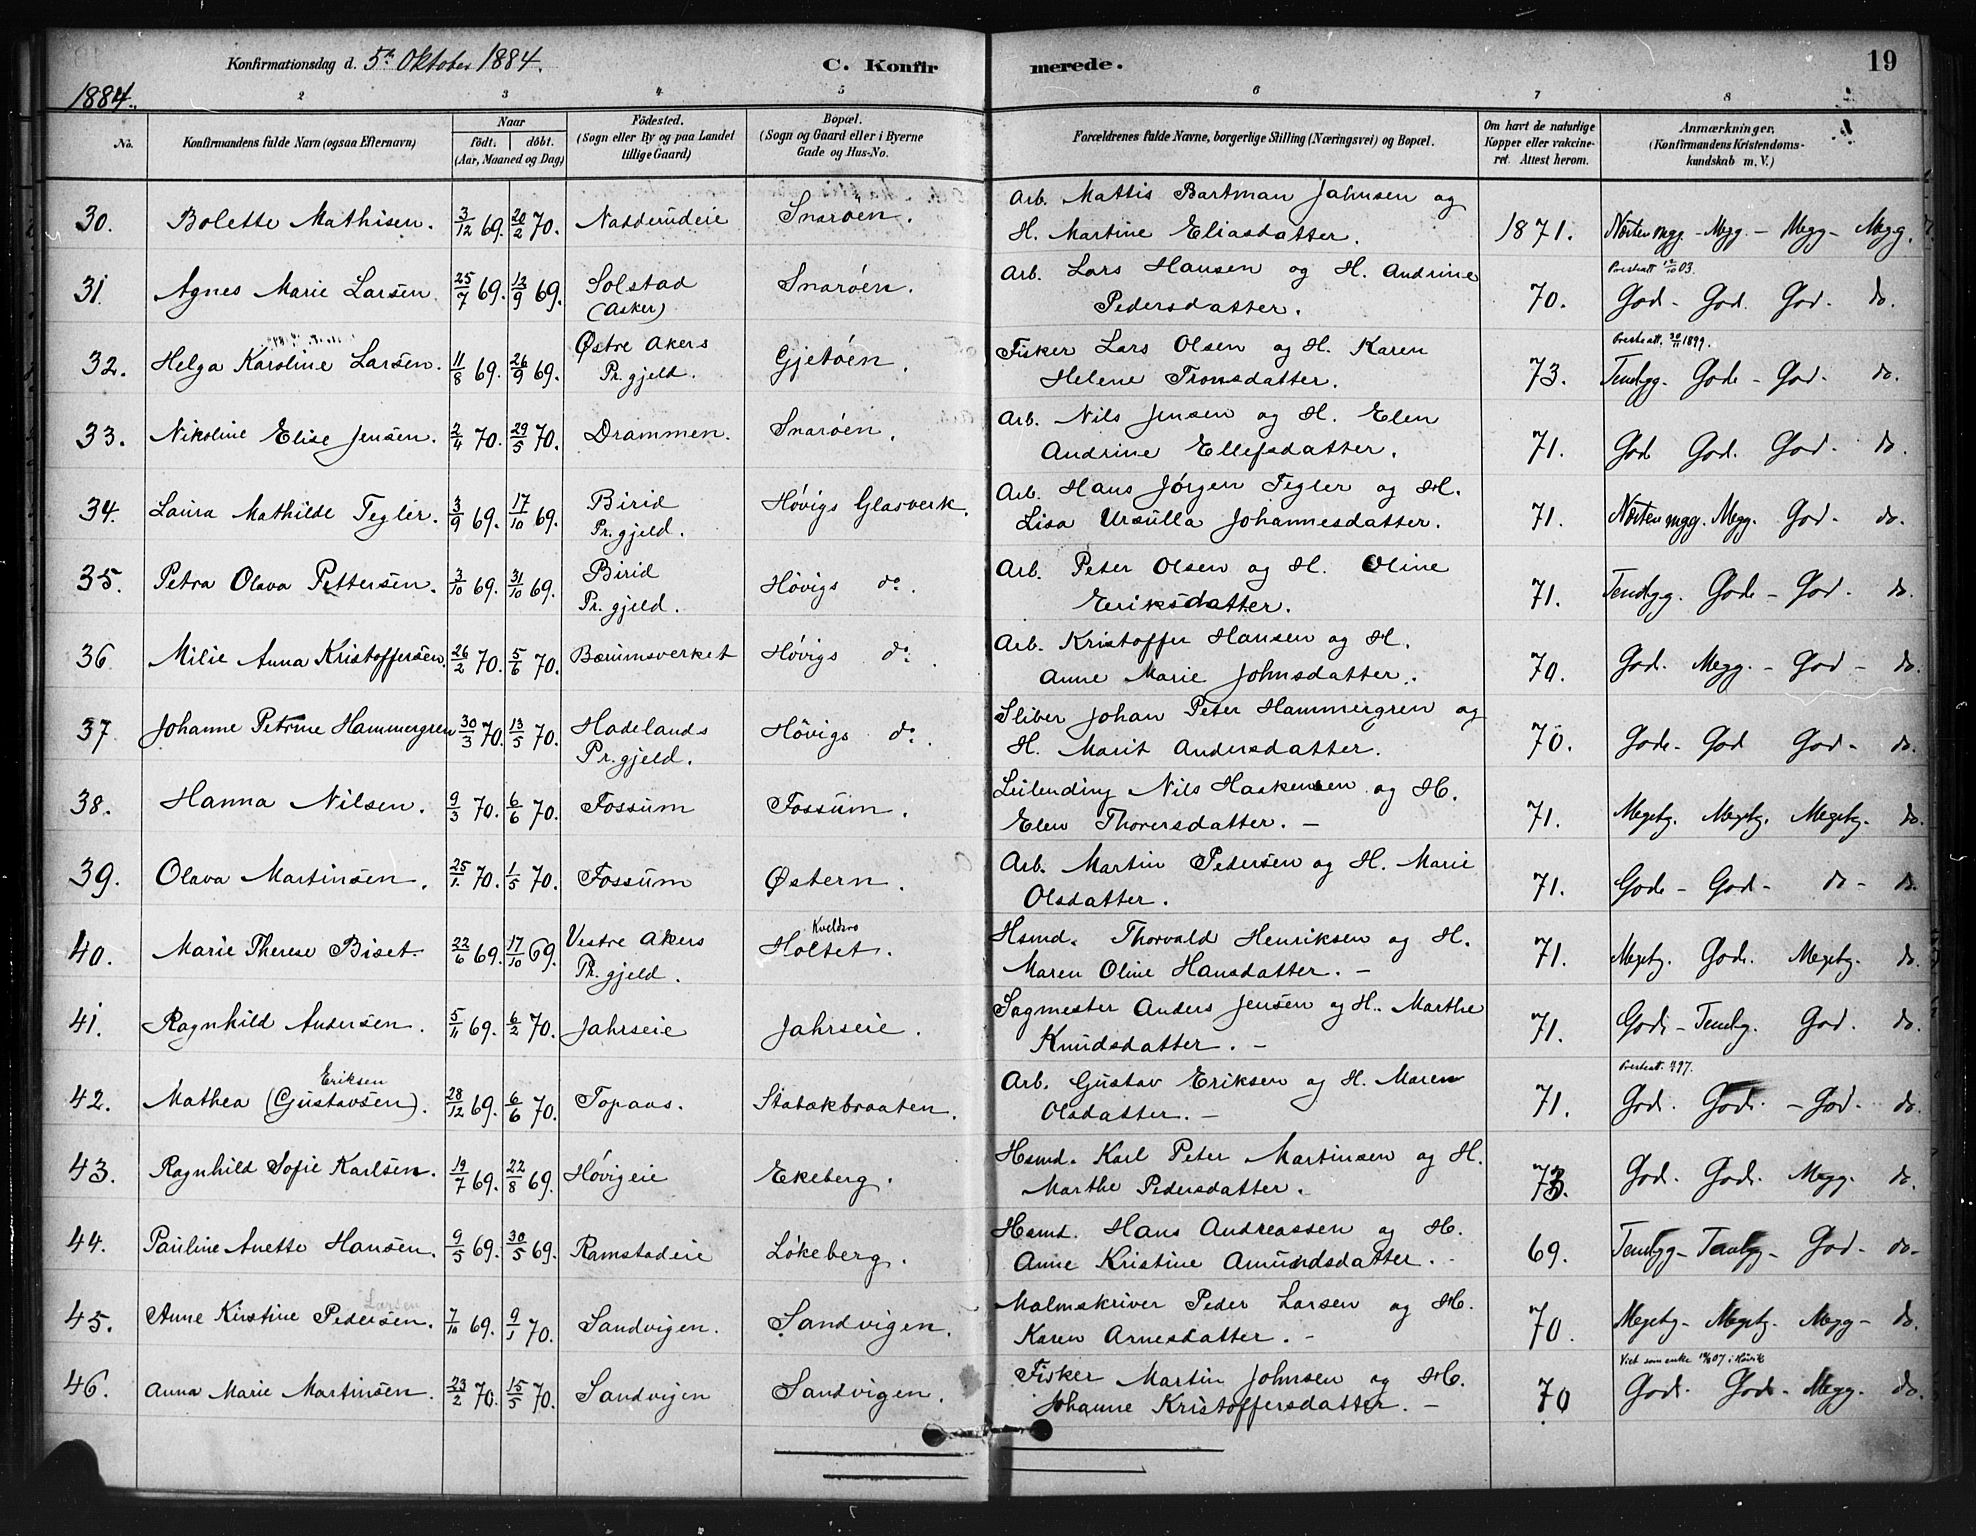 Konfirmationsdag d. 5te Oktober 1884. C. Konfirmerede. 19
1884.
2 3 4 5 6 7 8
No. Konfirmandens fulde Navn (ogsaa Efternavn) Naar födt. döbt. (Aar, Maaned og Dag) Födested. (Sogn eller By og paa Landet tillige Gaard) Bopæl. (Sogn og Gaard eller i Byerne Gade og Hus-No. Forældrenes fulde Navne, borgerlige Stilling (Næringsvei) og Bopæl. Om havt de naturlige Kopper eller vakcineret. Attest herom. Anmærkninger. (Konfirmandens Kristendomskundskab m. V.)
30. Bolette Mathisen. 3/12 69. 20/2 70. Nadderudeie Snarøen. Arb. Mattis Bartman Jahnsen og
H. Martine Eliasdatter. 1871. Næsten mgg. - Megg. - Megg - Megg.
31. Agnes Marie Larsen. 25/7 69. 12/9 69. Solstad (Asker) Snarøen. Arb. Lars Hansen og H. Andrine
Pedersdatter. 70. Prestatt 12/10 03. God - God. God. do.
32. Helga Karoline Larsen. 11/8 69. 26/9 69. Østre Akers Pr. gjeld. Gjetøen. Fisker Lars Olsen og H. Karen
Helene Tronsdatter. 73. Prestatt. 20/11 1899. Temlgg. Gode - God. do.
33. Nikoline Elise Jensen. 2/4 70. 29/5 70. Drammen. Snarøen. Arb. Nils Jensen og H. Elen
Andrine Ellefsdatter. 71. God God. God. do
34. Laura Mathilde Tegler. 3/9 69. 17/10 69. Birid Pr. gjeld. Høvigs Glasverk. Arb. Hans Jörgen Tegler og H.
Lisa Ursulla Johannesdatter. 71. Næsten mgg. Megg. God - do.
35. Petra Olava Pettersen. 3/10 69. 31/10 69. Birid Pr. gjeld. Høvigs do. Arb. Peter Olsen og H. Oline
Eeriksdatter. 71. Temlgg. Gode - God. do.
36. Milie Anna Kristoffersen. 26/2 70. 5/6 70. Bærumsverket Høvigs do. Arb. Kristoffer Hansen og H.
Anne Marie Johnsdatter. 70. God. Megg. - God - do
37. Johanne Petrine Hammergren 30/3 70. 13/5 70. Hadelands Pr. gjeld. Høvigs do. Sliber Johan Peter Hammergren og
H. Marit Andersdatter. 70. Gode - God God - do.
38. Hanna Nilsen. 9/3 70. 6/6 70. Fossum Fossum. Leilending Nils Haakensen og H.
Elen Thorersdatter. - 71. Megetg. Megetg. Megetg. do.
39. Olava Martinsen. 25/1 70. 1/5 70. Fossum Østern. Arb. Martin Pedersen og H. Marie
Olsdatter. 71. Gode - God - do - do.
40. Marie Therese Biset. 22/6 69. 17/10 69. Vestre Akers Pr. gjeld. Kveldsro Holtet. Hsmd. Thorvald Henriksen og H.
Maren Oline Hansdatter. - 71. Megetg. Gode. Megetg. do.
41. Ragnhild Andersen. 5/11 69. 6/2 70. Jahrseie Jahrseie. Sagmester Anders Jensen og H. Marthe
Knudsdatter. - 71. Gode - Temlg. God. do.
42. Mathea Eriksen (Gustavsen). 28/12 69. 6/6 70. Topaas. Stabækbraaten. Arb. Gustav Eriksen og H. Maren
Olsdatter. - 71. God. Gode - God - do
43. Ragnhild Sofie Karlsen. 19/7 69. 22/8 69. Høvigeie Ekeberg. Hsmd. Karl Peter Martinsen og H.
Marthe Pedersdatter. 73. God. Gode. Megg. do.
44. Pauline Anette Hansen. 9/5 69. 30/5 69. Ramstadeie Løkeberg. Hsmd. Hans Andreassen og H.
Anne Kristine Amundsdatter. - 69. Temlgg - Temlg - God - do -
45. Anne Kirstine Pedersen. Larsen 7/10 69. 9/1 70. Sandvigen. Sandvigen. Malmskriver Peder Larsen og H.
Karen Arnesdatter. - 70. Megetg - Megetg. Megg - do.
46. Anna Marie Martinsen. 23/2 70. 15/5 70. Sandvigen Sandvigen. Fisker Martin Johnsen og H.
Johanne Kristoffersdatter. - 70 Viet som enke 07 i Høvik God. Gode - Megg. do.